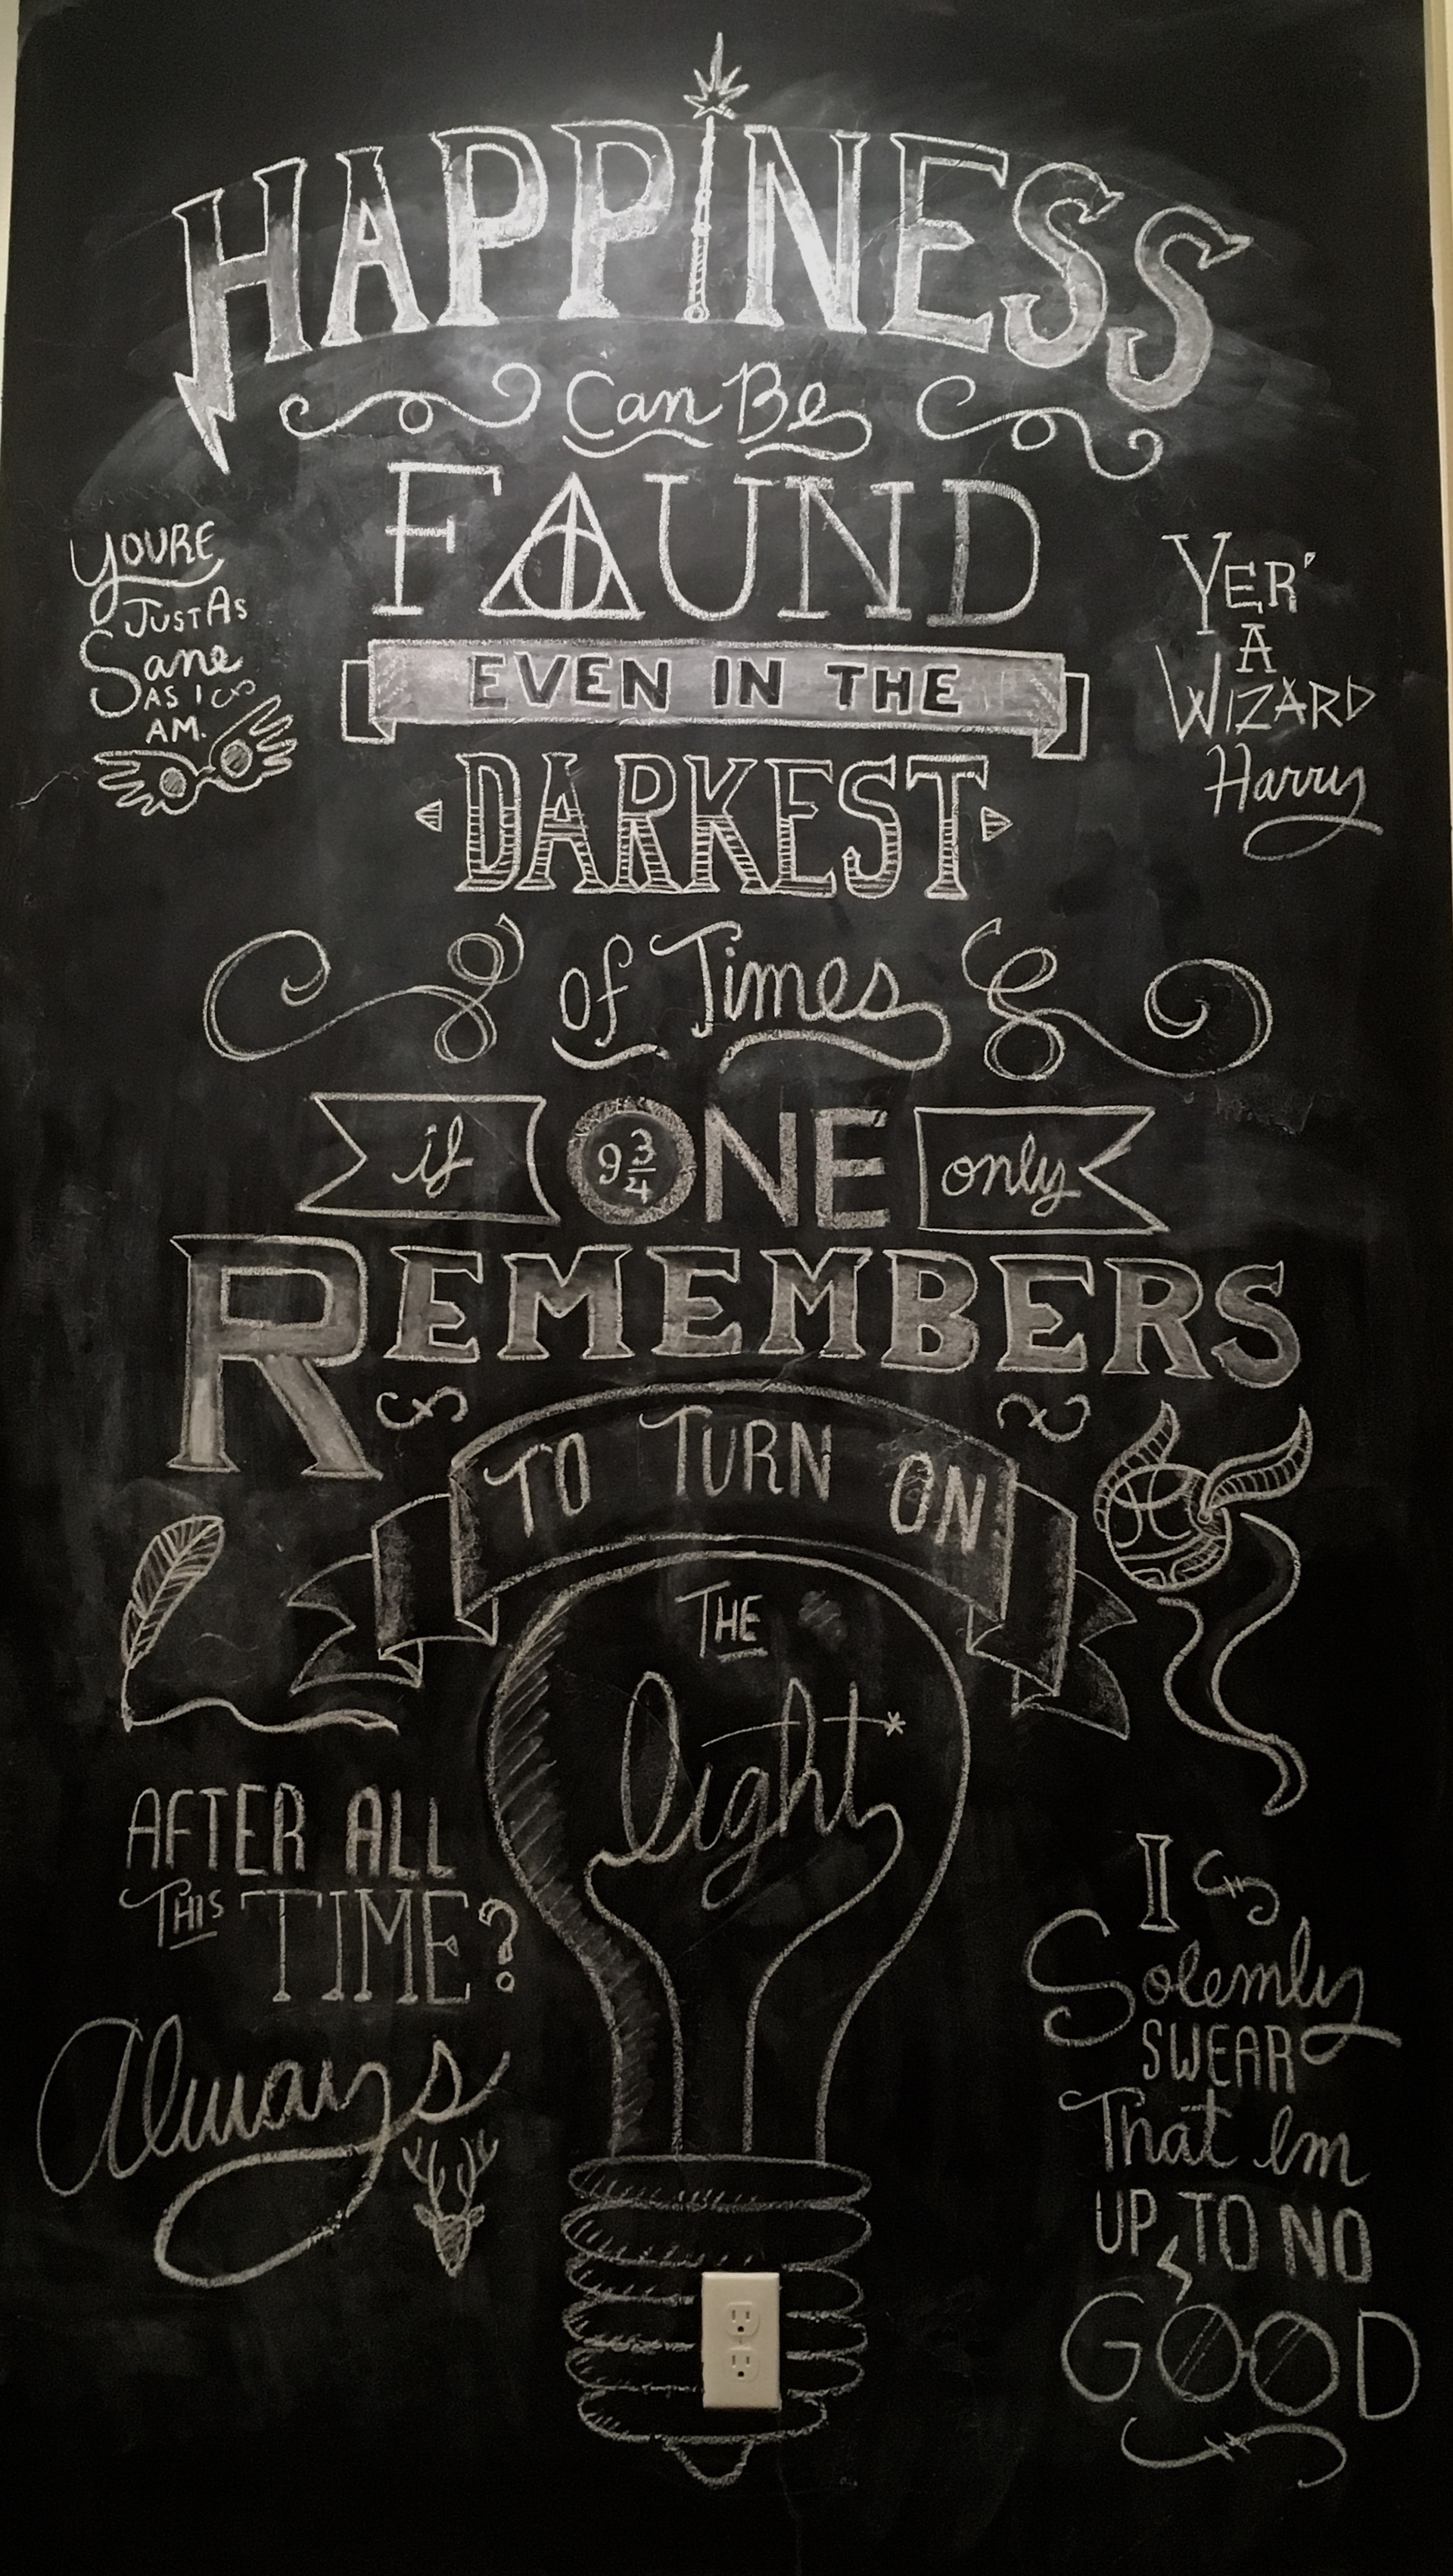 HAPPINESS
Can Be
FOUND
YOURE
JUST AS
Sane
AS I
AM.
YER'
A
WIZARD
Harry
EVEN IN THE
DARKEST
of Times
if ONE only
9 3/4
REMEMBERS
TO TURN ON
THE
light*
AFTER ALL
THIS TIME?
Always
I
Solemly
SWEAR
That Im
UP TO NO
GOOD